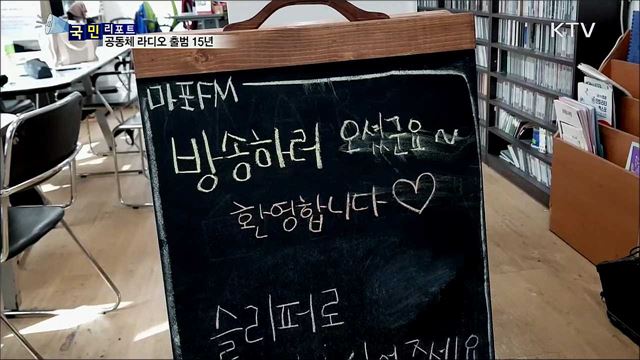 국민 리포트
공동체 라디오 출범 15년
KTV
마포FM
방송하러 오셨군요~
환영합니다♡
슬리퍼로